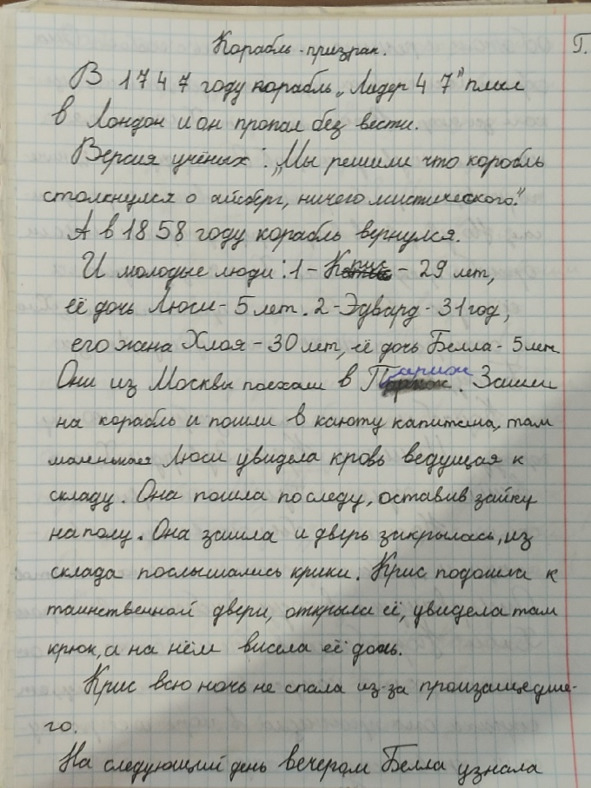 Корабль-призрак.
Г.
В 1747 году корабль „Лидер 47" плыл
в Лондон и он пропал без вести.
Версия учёных: „Мы решили что коробль
столкнулся о айсберг, ничего мистического."
А в 1858 году корабль вернулся.
И молодые люди: 1 - Крис - 29 лет,
её дочь Люси - 5 лет. 2 - Эдвард - 31 год,
его жена Хлоя - 30 лет, её дочь Белла - 5 лет
Они из Москвы поехали в Париж. Зашли
на корабль и пошли в каюту капитана, там
маленькая Люси увидела кровь ведущая к
складу. Она пошла по следу, оставив зайку
на полу. Она зашла и дверь закрылась, из
склада послышались крики. Крис подошла к
таинственной двери, открыла её, увидела там
крюк, а на нём висела её дочь.
Крис всю ночь не спала из-за произашедше-
го.
На следующий день вечером Белла узнала